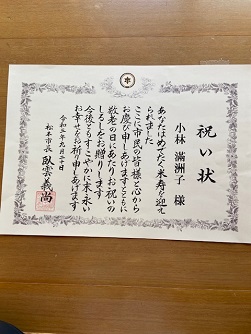 祝い状
小林 満洲子 様
あなたはめでたく米寿を迎えられました
ここに市民の皆様と心からお慶び申しあげますとともに
敬老の日にあたりお祝いのしるしをお贈りします
今後ともすこやかに末永いお幸せをお祈り申しあげます
令和三年九月二十日
松本市長 臥雲義尚